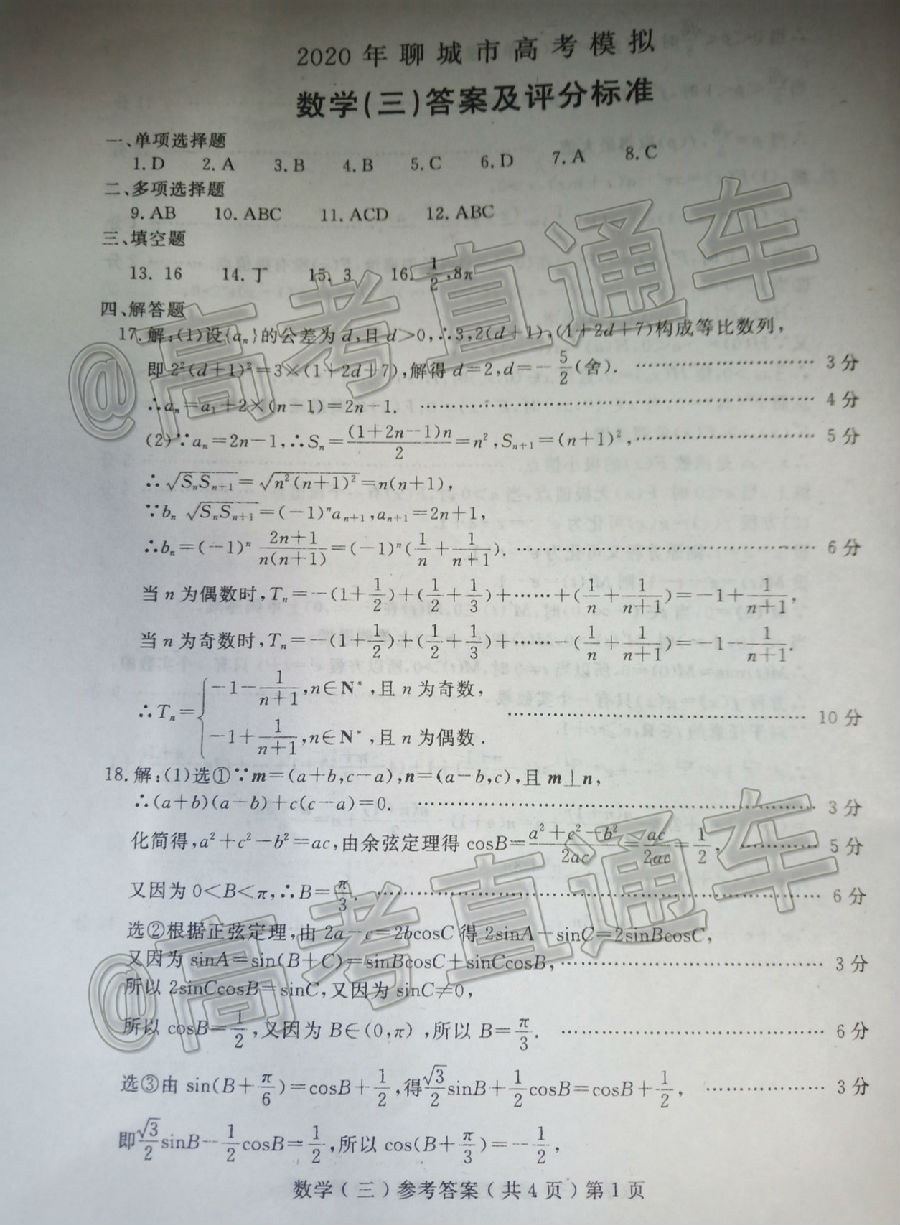 2020年聊城市高考模拟
数学(三)答案及评分标准
一、单项选择题
1.D 2.A 3.B 4.B 5.C 6.D 7.A 8.C
二、多项选择题
9.AB 10.ABC 11.ACD 12.ABC
三、填空题
13. 16 14.丁 15. 3 16. 1/2, 8π
四、解答题
17.解:(1)设{aₙ}的公差为d,且d>0,∴3,2(d+1),(1+2d+7)构成等比数列,
即2²(d+1)²=3×(1+2d+7),解得d=2,d=-5/2(舍). ……………… 3分
∴aₙ=a₁+2×(n-1)=2n-1. ……………… 4分
(2)∵aₙ=2n-1,∴Sₙ=(1+2n-1)n/2=n²,Sₙ₊₁=(n+1)², ……………… 5分
∴√(SₙSₙ₊₁)=√(n²(n+1)²)=n(n+1),
∵bₙ√(SₙSₙ₊₁)=(-1)ⁿaₙ₊₁,aₙ₊₁=2n+1,
∴bₙ=(-1)ⁿ (2n+1)/(n(n+1))=(-1)ⁿ(1/n+1/(n+1)). ……………… 6分
当n为偶数时,Tₙ=-(1+1/2)+(1/2+1/3)+……+(1/n+1/(n+1))=-1+1/(n+1),
当n为奇数时,Tₙ=-(1+1/2)+(1/2+1/3)+……-(1/n+1/(n+1))=-1-1/(n+1).
∴Tₙ={-1-1/(n+1),n∈N*,且n为奇数,
-1+1/(n+1),n∈N*,且n为偶数. ……………… 10分
18.解:(1)选①∵m=(a+b,c-a),n=(a-b,c),且m⊥n,
∴(a+b)(a-b)+c(c-a)=0. ……………… 3分
化简得,a²+c²-b²=ac,由余弦定理得cosB=(a²+c²-b²)/2ac=ac/2ac=1/2, ……………… 5分
又因为0<B<π,∴B=π/3, ……………… 6分
选②根据正弦定理,由2a-c=2bcosC得2sinA-sinC=2sinBcosC,
又因为sinA=sin(B+C)=sinBcosC+sinCcosB, ……………… 3分
所以2sinCcosB=sinC,又因为sinC≠0,
所以cosB=1/2,又因为B∈(0,π),所以B=π/3. ……………… 6分
选③由sin(B+π/6)=cosB+1/2,得√3/2sinB+1/2cosB=cosB+1/2, ……………… 3分
即√3/2sinB-1/2cosB=1/2,所以cos(B+π/3)=-1/2,
数学(三)参考答案(共4页)第1页
@高考直通车
@高考直通车